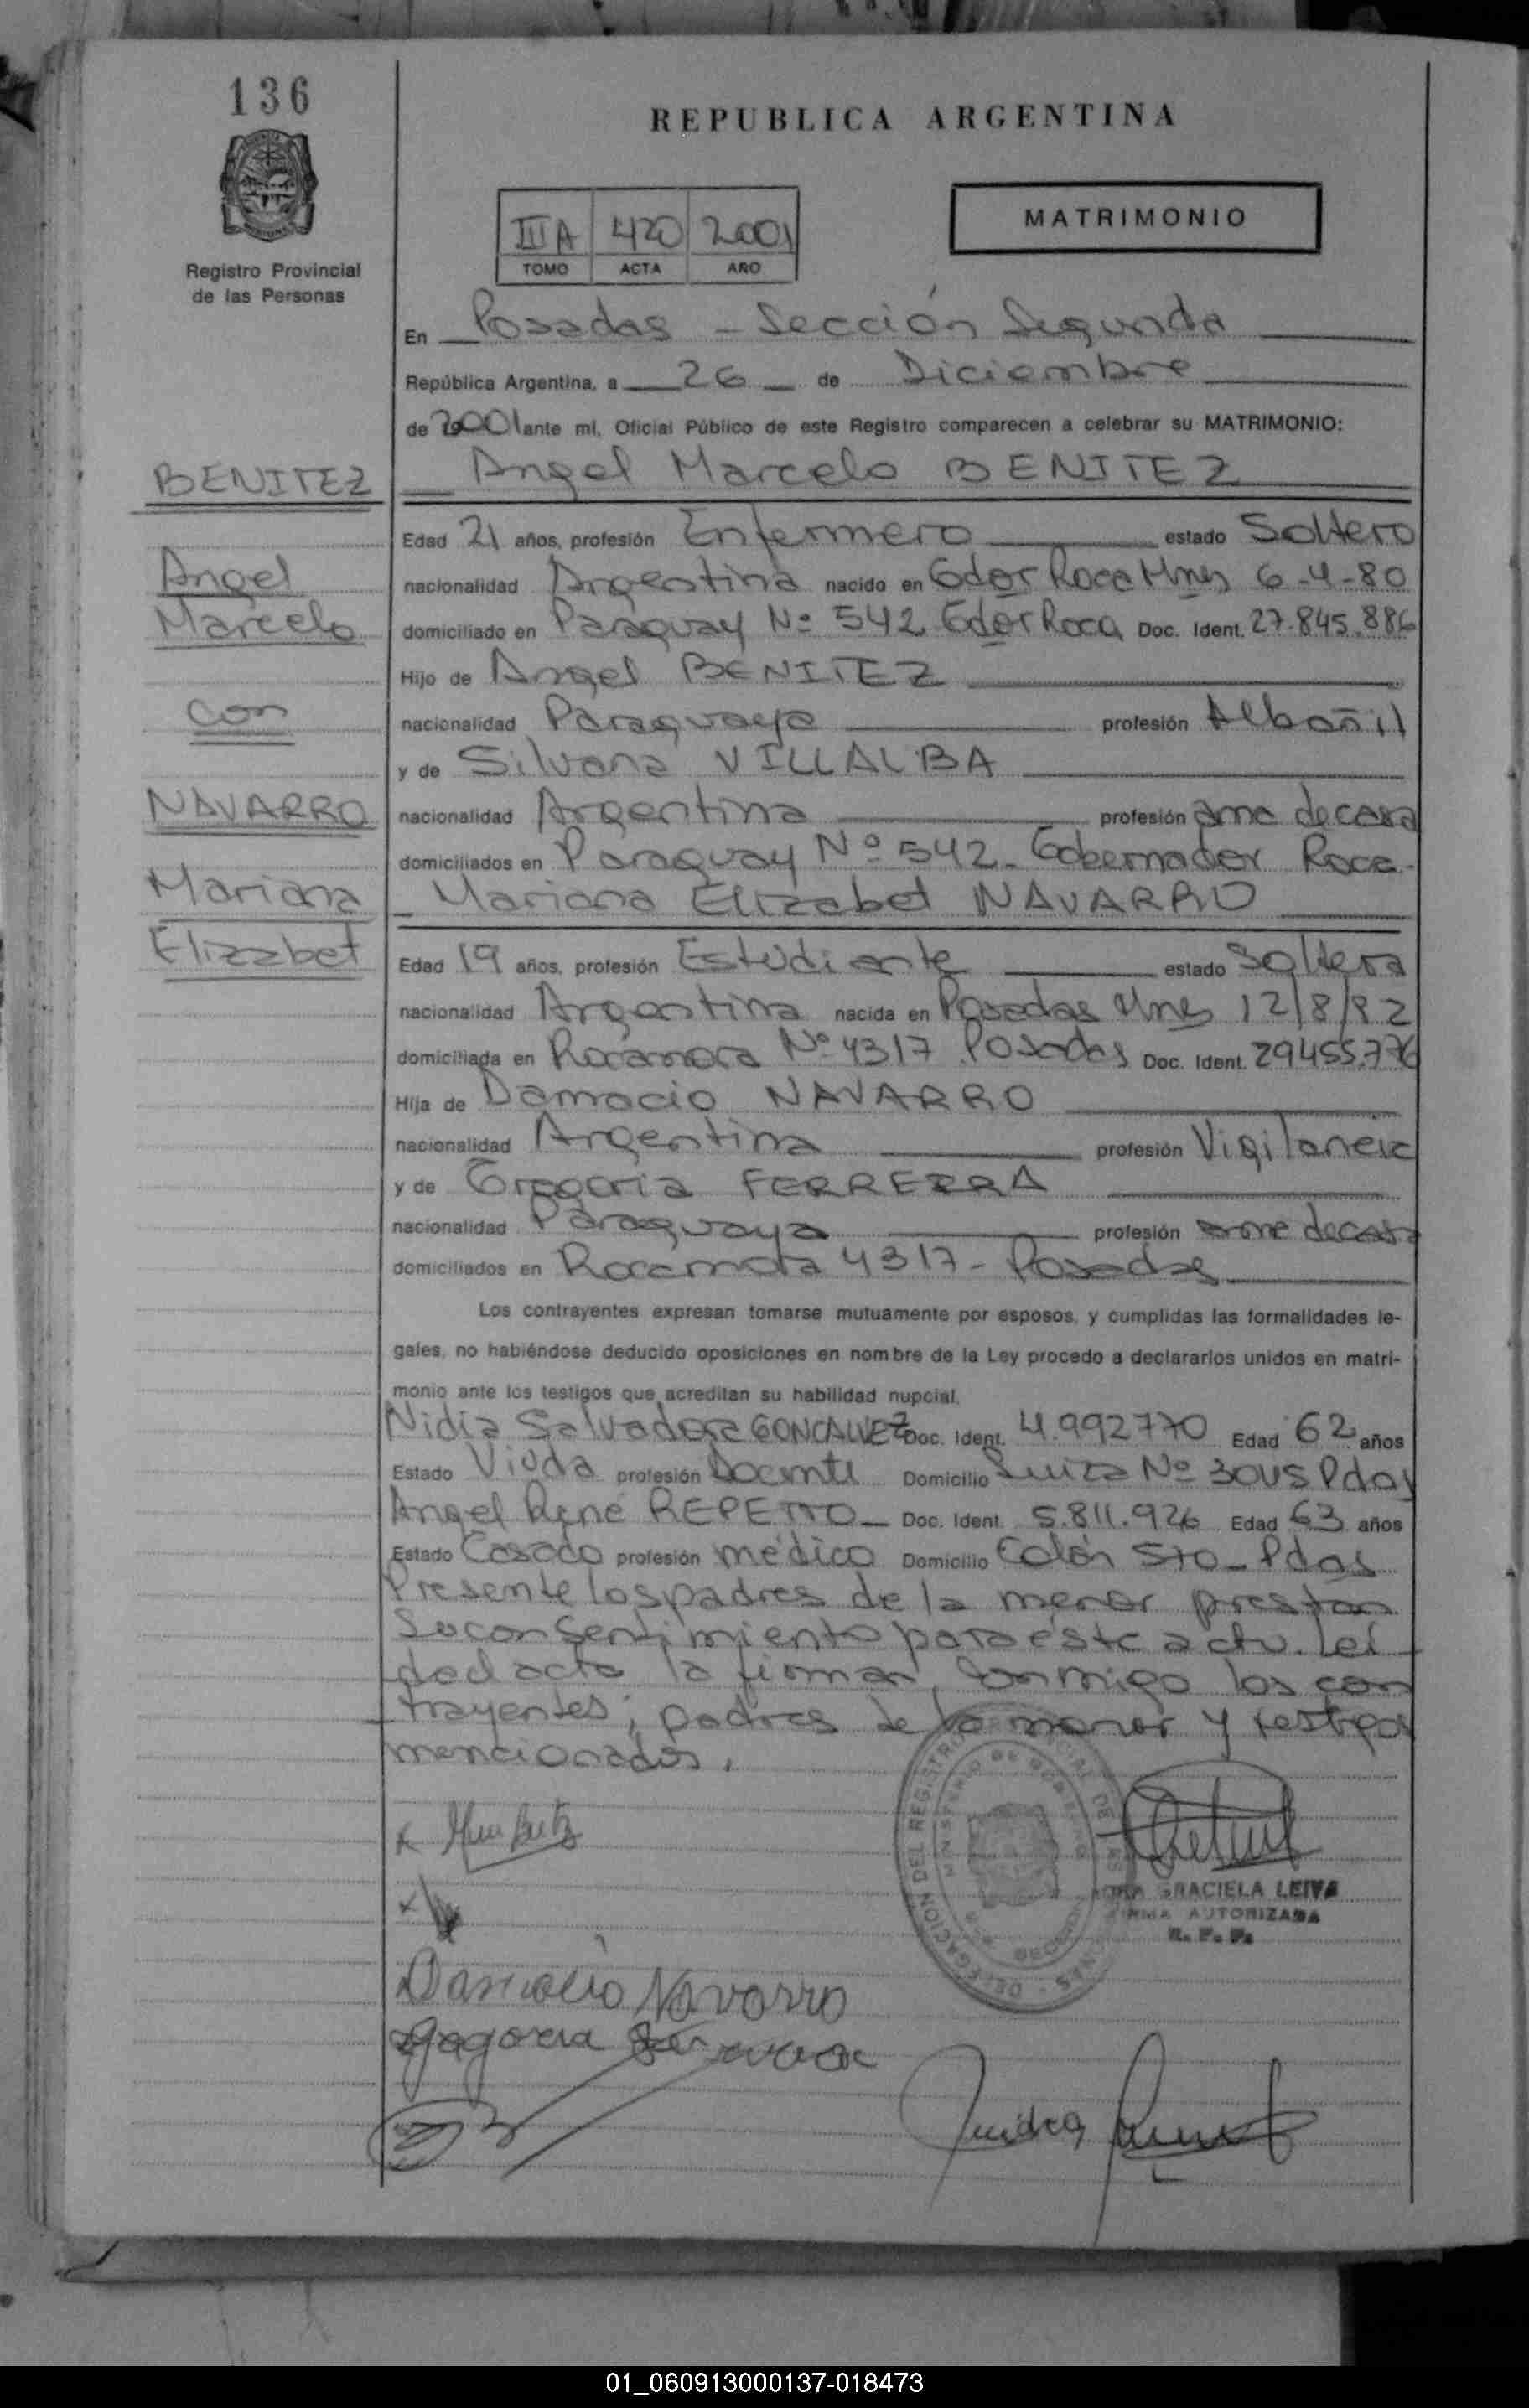 136
REPUBLICA ARGENTINA
Registro Provincial
de las Personas
III A 420 2001
TOMO ACTA AÑO
MATRIMONIO
En Posadas - Sección Segunda
República Argentina, a 26 de Diciembre
de 2001 ante mí, Oficial Público de este Registro comparecen a celebrar su MATRIMONIO:
BENITEZ
Angel
Marcelo
con
NAVARRO
Mariana
Elizabet
Angel Marcelo BENITEZ
Edad 21 años, profesión Enfermero estado Soltero
nacionalidad Argentina nacido en Gdor Roca Mnes 6-4-80
domiciliado en Paraguay Nº 542 Gdor Roca Doc. Ident. 27.845.886
Hijo de Angel BENITEZ
nacionalidad Paraguaya profesión Albañil
y de Silvana VILLALBA
nacionalidad Argentina profesión ama de casa
domiciliados en Paraguay Nº 542 - Gobernador Roca -
Mariana Elizabet NAVARRO
Edad 19 años, profesión Estudiante estado Soltera
nacionalidad Argentina nacida en Posadas Mnes 12/8/82
domiciliada en Rocamora Nº 4317 Posadas Doc. Ident. 29455.776
Hija de Damacio NAVARRO
nacionalidad Argentina profesión Vigilancia
y de Gregoria FERREIRA
nacionalidad Paraguaya profesión ama de casa
domiciliados en Rocamora 4317 - Posadas
Los contrayentes expresan tomarse mutuamente por esposos, y cumplidas las formalidades le-
gales, no habiéndose deducido oposiciones en nombre de la Ley procedo a declararlos unidos en matri-
monio ante los testigos que acreditan su habilidad nupcial.
Nidia Salvadora GONCALVEZ Doc. Ident. 4.992770 Edad 62 años
Estado Viuda profesión Docente Domicilio Suiza Nº Pdas
Angel René REPETTO - Doc. Ident. 5.811.926 Edad 63 años
Estado Casado profesión médico Domicilio Colón - Pdas
Presente los padres de la menor prestan
su consentimiento para éste acto. Leí
da el acta la firman conmigo los con
trayentes, padres de la menor y testigos
mencionados.
GRACIELA LEIVA
FIRMA AUTORIZADA
R. P. P.
DELEGACION DEL REGISTRO PROVINCIAL DE LAS PERSONAS
MINISTERIO DE GOBIERNO
Damacio Navarro
01_060913000137-018473